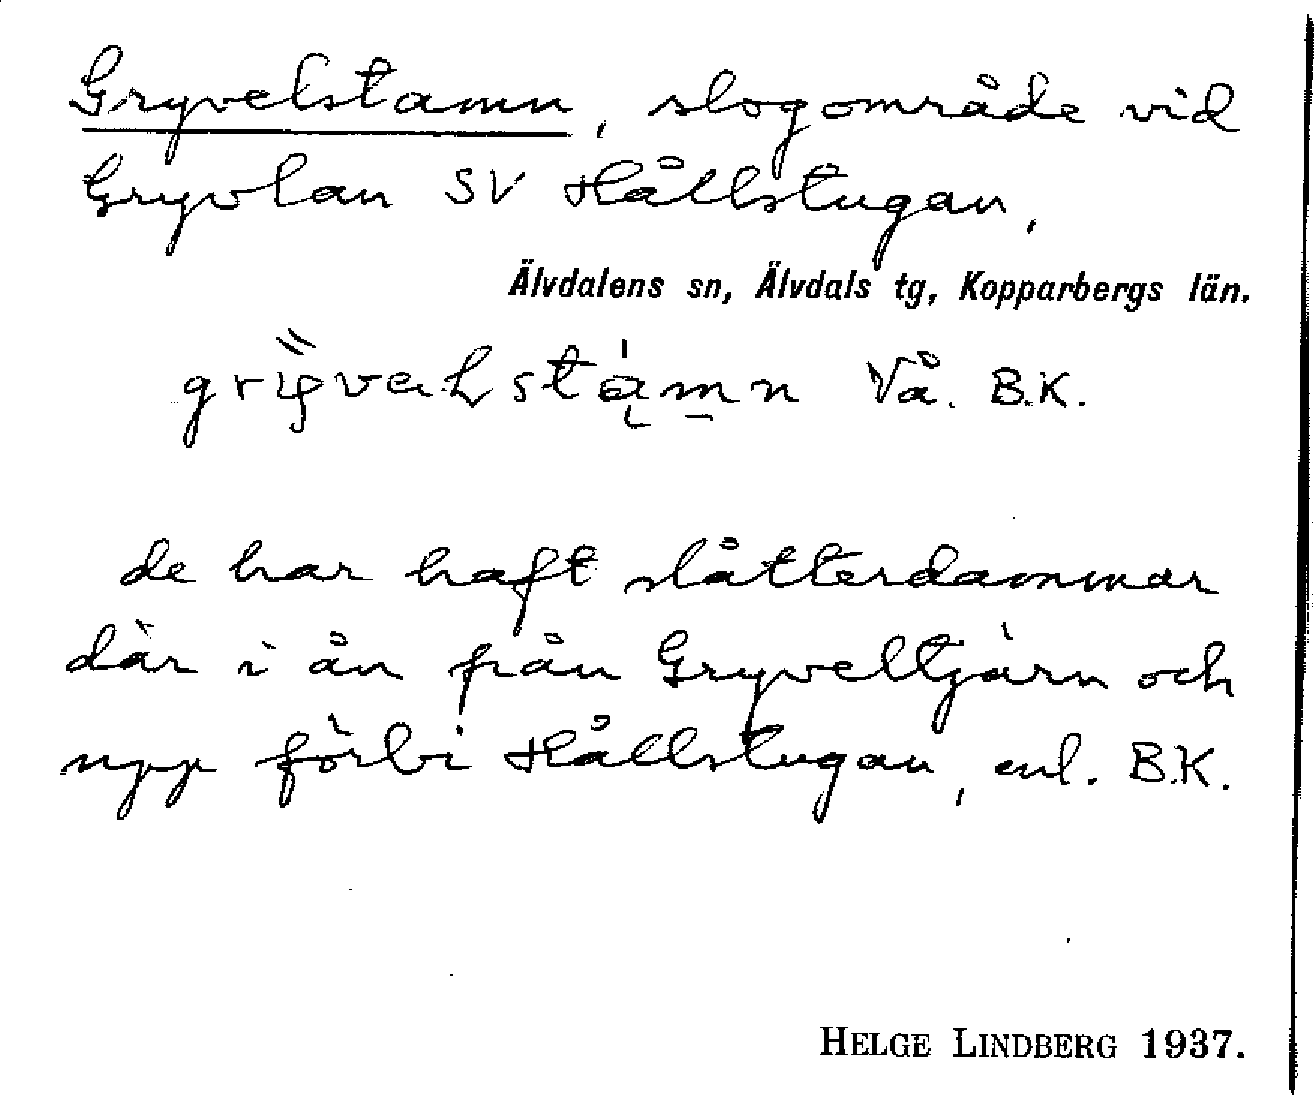 Gryvelstamn, slogområde vid
Gryvlan SV Hållstugan,
Älvdalens sn, Älvdals tg, Kopparbergs län.
Vå. B.K.
de har haft slåtterdammar
där i ån från Gryveltjärn och
upp förbi Hållstugan, enl. B.K.
HELGE LINDBERG 1937.